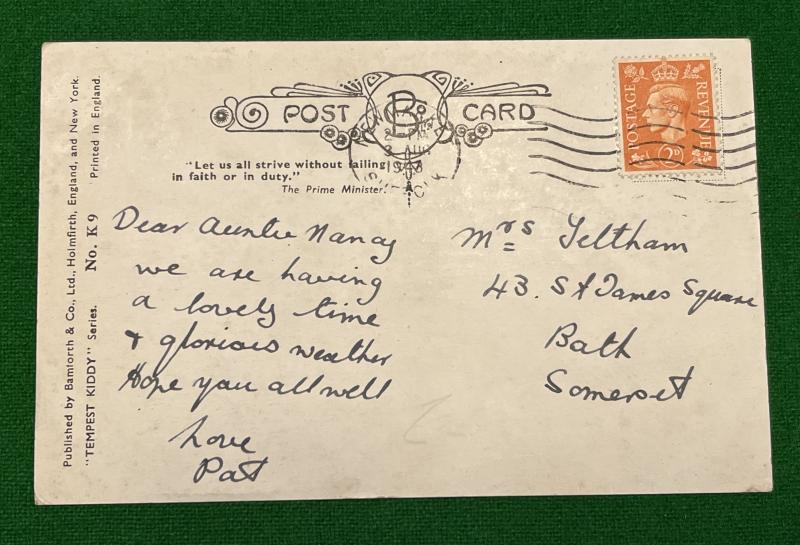 POST CARD
B & Co
2 PM
3 AUG
19
"Let us all strive without failing
in faith or in duty."
The Prime Minister.
POSTAGE REVENUE
2D
Dear Auntie Nancy
we are having
a lovely time
& glorious weather
Hope you all well
Love
Pat
Mrs Teltham
43. St James Square
Bath
Somerset
Published by Bamforth & Co., Ltd., Holmfirth, England, and New York.
Printed in England.
"TEMPEST KIDDY" Series. No. K 9